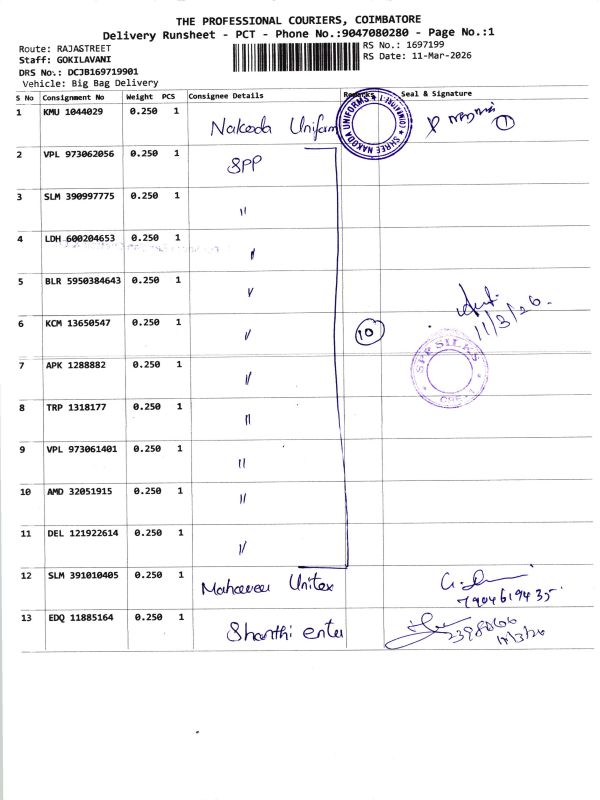 THE PROFESSIONAL COURIERS, COIMBATORE
Delivery Runsheet - PCT - Phone No.:9047080280 - Page No.:1
Route: RAJASTREET
RS No.: 1697199
Staff: GOKILAVANI
RS Date: 11-Mar-2026
DRS No.: DCJB169719901
Vehicle: Big Bag Delivery
S No Consignment No Weight PCS Consignee Details Remarks Seal & Signature
1 KMU 1044029 0.250 1 Nakoda Uniform ①
SHREE NAKODA UNIFORMS
2 VPL 973062056 0.250 1 SPP
3 SLM 390997775 0.250 1 〃
4 LDH 600204653 0.250 1 〃
5 BLR 5950384643 0.250 1 〃
11/3/26.
6 KCM 13650547 0.250 1 〃 ⑩
SPP SILKS
CBE-1
7 APK 1288882 0.250 1 〃
8 TRP 1318177 0.250 1 〃
9 VPL 973061401 0.250 1 〃
10 AMD 32051915 0.250 1 〃
11 DEL 121922614 0.250 1 〃
12 SLM 391010405 0.250 1 Mahaveer Unitex
7904619435.
13 EDQ 11885164 0.250 1 Shanthi enter